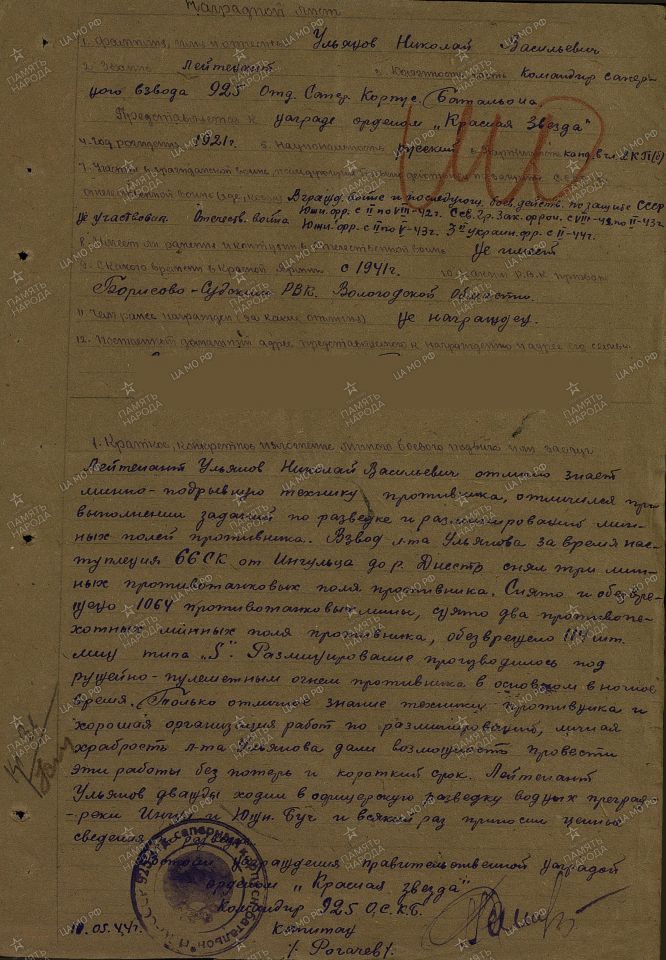 Наградной лист
1. Фамилия, имя и отчество Ульянов Николай Васильевич
2. Звание Лейтенант 3. Должность, часть Командир сапер-
ного взвода 925 Отд. Сапер. Корпус. Батальона
Представляется к награде орденом „Красная Звезда"
4. Год рождения 1921г. 5. Национальность русский 6. Партийность канд. в чл. ВКП(б)
7. Участие в гражданской войне, последующих боевых действиях по защите СССР и
отечественной войне (где, когда) В гражд. войне и последующ. боев. действ. по защите СССР
не участвовал Отечеств. война Южн. фр. с II по VIII-42г. Сев. Гр. Зак. фрон. с VIII-42 по II-43г.
Южн. фр. с II по V-43г. 3й украин. фр. с II-44г.
8. Имеет ли ранения и контузии в отечественной войне Не имеет
9. С какого времени в Красной Армии с 1941г. 10. Каким РВК призван
Борисово-Судским РВК. Вологодской Области.
11. Чем ранее награжден (за какие отличия) Не награжден.
12. Постоянный домашний адрес представляемого к награждению и адрес его семьи
1. Краткое, конкретное изложение личного боевого подвига или заслуг
Лейтенант Ульянов Николай Васильевич отлично знает
минно-подрывную технику противника, отличился при
выполнении заданий по разведке и разминирований мин-
ных полей противника. Взвод л-та Ульянова за время нас-
тупления 66 СК от Ингульца до р. Днестр снял три мин-
ных противотанковых поля противника. Снято и обезвре-
жено 1064 противотанковых мины, снято два противопе-
хотных минных поля противника, обезврежено шт.
мин типа „S". Разминирование производилось под
ружейно-пулеметным огнем противника в основном в ночное
время. Только отличное знание техники противника и
хорошая организация работ по разминированию, личная
храбрость л-та Ульянова дали возможность провести
эти работы без потерь и короткий срок. Лейтенант
Ульянов дважды ходил в офицерскую разведку водных преград
-реки Ингул и Южн. Буг и всякий раз приносил ценные
сведения
награждения правительственной наградой
орденом „Красная звезда"
Командир 925 О.С.К.Б.
10.05.44г. Капитан
/. Рогачев/.